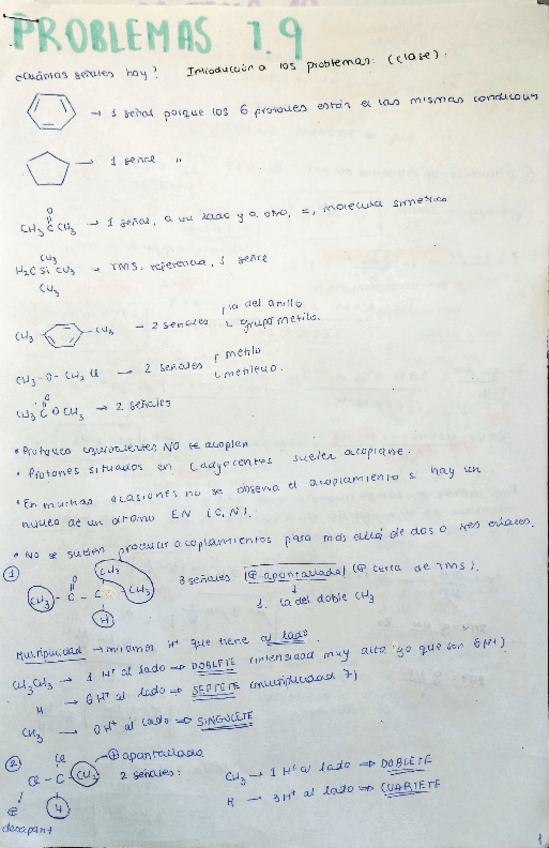 PROBLEMAS 7.9
¿Cuántas señales hay? Introducción a los problemas: (clase).
→ 1 señal porque los 6 protones están en las mismas condiciones
→ 1 señal "
O
CH3 C CH3 → 1 señal, a un lado y a otro, =, molécula simétrica
CH3
H3C Si CH3 → TMS, referencia, 1 señal
CH3
CH3 CH3 → 2 señales la del anillo
grupo metilo.
CH3-O-CH2 Cl → 2 señales metilo
metileno.
O
CH3 C O CH3 → 2 señales
• Protones equivalentes NO se acoplan
• Protones situados en C adyacentes suelen acoplarse.
• En muchas ocasiones no se observa el acoplamiento si hay un
núcleo de un átomo EN (O, N).
• No se suelen producir acoplamientos para más allá de dos o tres enlaces.
① CH3
O
CH3 - C - C - CH3 3 señales (⊕ apantallada) (⊕ cerca de TMS).
H 1. la del doble CH3
Multiplicidad → miramos H+ que tiene al lado.
CH3CH3 → 1 H+ al lado ⇒ DOBLETE (intensidad muy alta ya que son 6H+)
H → 6H+ al lado ⇒ SEPTETE (multiplicidad 7)
CH3 → 0H+ al lado ⇒ SINGULETE
② Cl ⊕ apantallado
Cl - C - CH3 2 señales: CH3 → 1 H+ al lado ⇒ DOBLETE
H H → 3H+ al lado ⇒ CUARTETE
⊕
desapant
1